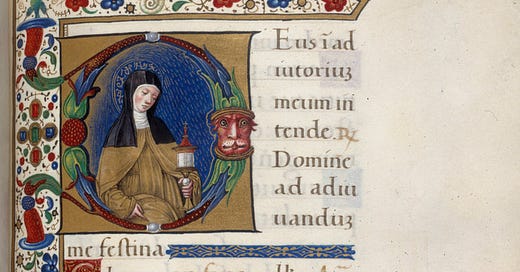 DEus īad
iutoriuz
meum in
tende. R
Domine
ad adiu
uanduz
me festina